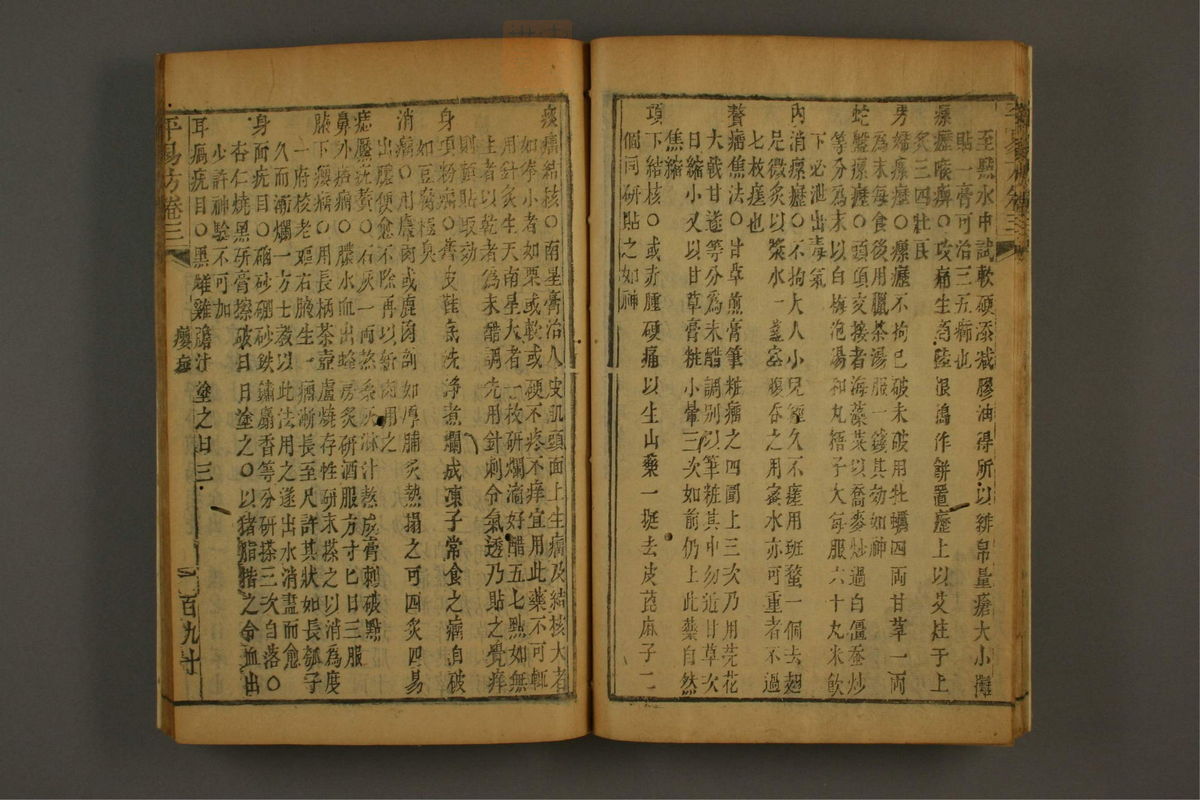 至點水中試軟硬添減膠油得所以緋帛量瘡大小攤
貼一膏可治三五癤也
瘰癧喉痹○攻痛生蔫陸根搗作餅置癧上以艾炷于上
炙三四壯艮
男婦瘰癧○瘰癧不拘已破未破用牡蠣四兩甘草一兩
為末每食後用臘茶湯服一錢其効如神
蛇盤瘰癧○頭項交接者海藻菜以喬麥炒過白僵蚕炒
等分為末以白梅泡湯和丸梧子大每服六十丸米飲
下必泄出毒氣
內消瘰癧○不拘大人小兒經久不瘥用班蝥一個去翅
足微炙以漿水一盞空腹吞之用蜜水亦可重者不過
七枚瘥也
贅瘤焦法○甘草煎膏筆粧瘤之四圍上三次乃用芫花
大戟甘遂等分為末醋調別以筆粧其中勿近甘草次
日縮小又以甘草膏粧小暈三次如前仍上此藥自然
焦縮
項下結核○或赤腫硬痛以生山藥一挺去皮萞麻子二
個同研貼之如神
平易方卷三
痰瘤結核○南星膏治人皮肌頭面上生瘤及結核大者
如拳小者如栗或軟或硬不疼不痒宜用此藥不可輒
用針炙生天南星大者一枚研爛滴好醋五七點如無
生者以乾者為末醋調先用針刺令氣透乃貼之覺痒
則頻貼取効
身項粉瘤○舊皮鞋底洗净煮爛成凍子常食之瘤自破
如豆腐極臭
消瘤○用麞肉或鹿肉剖如厚脯炙熱搨之可四炙四易
出膿便愈不除再以新肉用之
瘂癧疣贅○石灰一兩蒸桑灰淋汁熬成膏刺破點
鼻外瘤病○膿水血出蜂房炙研酒服方寸匕日三服
腋下癭瘤○用長柄茶壺盧燒存性研末搽之以消為度
一府校老嫗右腋生一瘤漸長至尺許其狀如長瓠子
久而漸爛一方士教以此法用之遂出水消盡而愈
身面疣目○硇砂硼砂鉄鏽麝香等分研搽三次自落○
杏仁燒黑研膏擦破日日塗之○以猪脂揩之令血出
少許神驗不可加
耳瘑疣目○黑雌雞膽汁塗之日三
平易方卷三
癭瘤
一百九十